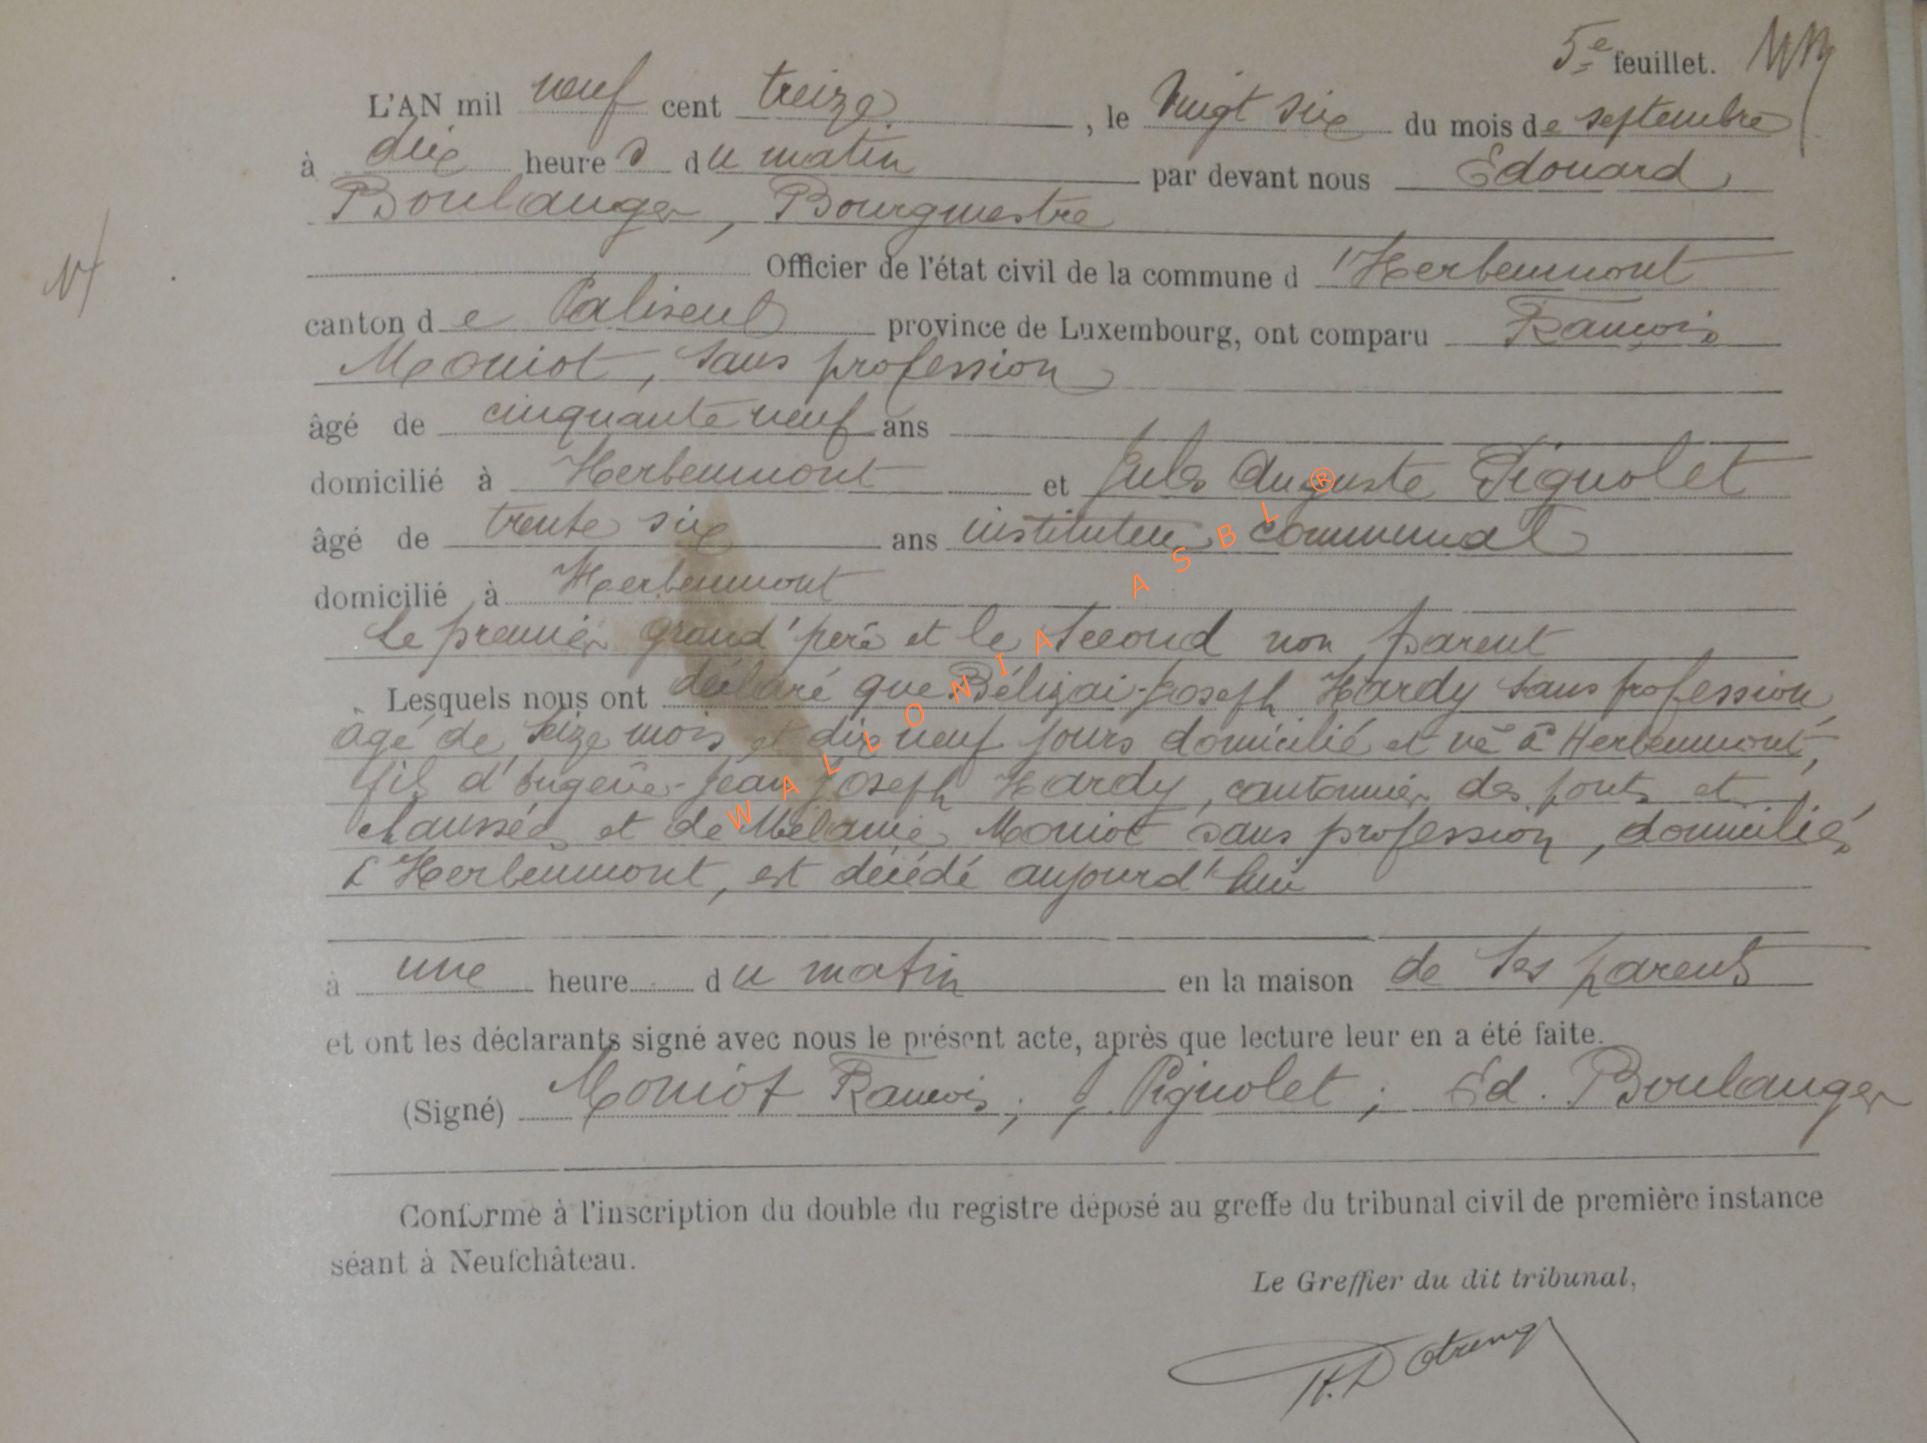 5e feuillet.
L'AN mil neuf cent treize, le vingt six du mois de septembre
à dix heures du matin par devant nous Edouard
Boulanger, Bourgmestre
Officier de l'état civil de la commune d'Herbeumont
canton de Paliseul province de Luxembourg, ont comparu François
Moniot, sans profession
âgé de cinquante neuf ans
domicilié à Herbeumont et Jules Auguste Pignolet
âgé de trente six ans instituteur communal
domicilié à Herbeumont
Le premier grand'père et le second non parent
Lesquels nous ont déclaré que Joseph Hardy sans profession
âgé de seize mois et dix neuf jours domicilié et né à Herbeumont,
fils d'Eugène-Jean Joseph Hardy, cantonnier des ponts et
chaussées et de Mélanie Moniot sans profession, domiciliés
à Herbeumont, est décédé aujourd'hui
à une heure du matin en la maison de ses parents
et ont les déclarants signé avec nous le présent acte, après que lecture leur en a été faite.
(Signé) Moniot François; J Pignolet; Ed. Boulanger
Conforme à l'inscription du double du registre déposé au greffe du tribunal civil de première instance
séant à Neufchâteau.
Le Greffier du dit tribunal,
WALLONIA ASBL ®